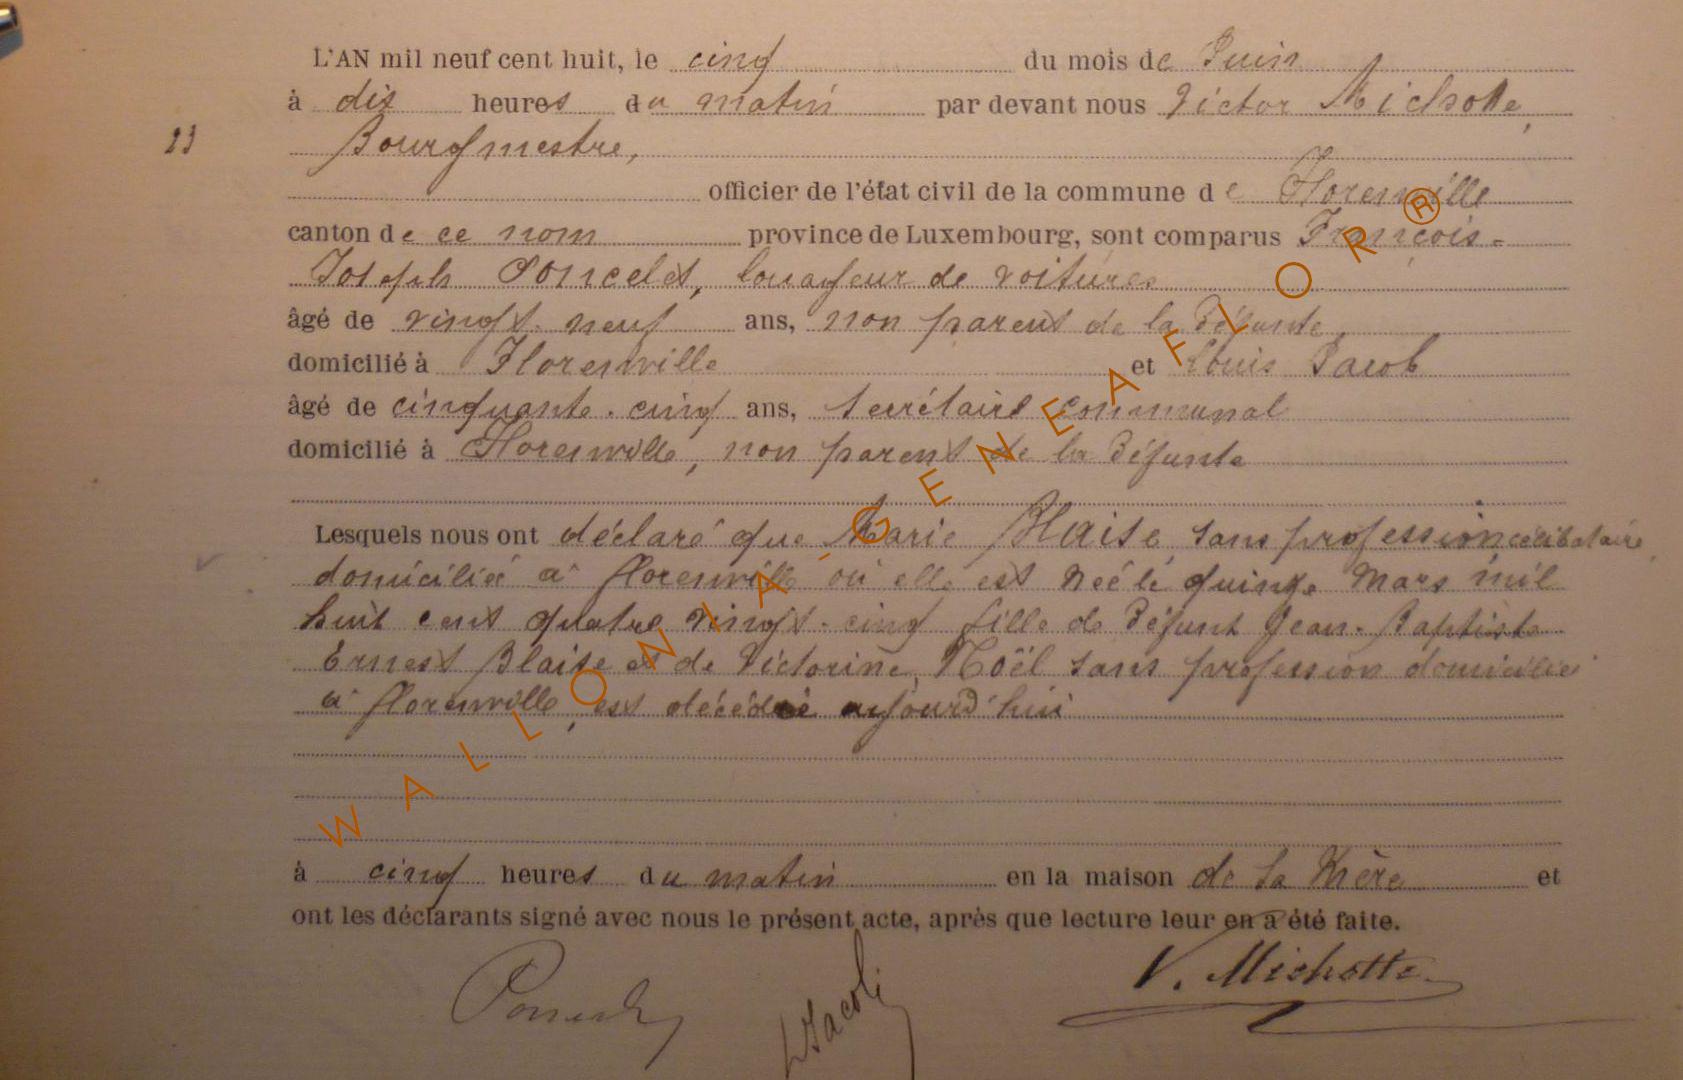 L'AN mil neuf cent huit, le cinq du mois de Juin
à dix heures du matin par devant nous Victor Michotte,
23
Bourgmestre,
officier de l'état civil de la commune de Florenville
canton de ce nom province de Luxembourg, sont comparus François-
Joseph Poncelet, louageur de voitures
âgé de vingt-neuf ans, non parent de la défunte,
domicilié à Florenville et Louis Jacob
âgé de cinquante-cinq ans, secrétaire communal
domicilié à Florenville, non parent de la défunte
Lesquels nous ont déclaré que Marie Blaise, sans profession, célibataire,
domiciliée à Florenville où elle est née le quinze Mars mil
huit cent quatre vingt-cinq fille de défunt Jean-Baptiste
Ernest Blaise et de Victorine Noël sans profession domiciliée
à Florenville, est décédée aujourd'hui
à cinq heures du matin en la maison de sa Mère et
ont les déclarants signé avec nous le présent acte, après que lecture leur en a été faite.
Poncelet LJacob V. Michotte
WALLONIA-GENEAFLOR®